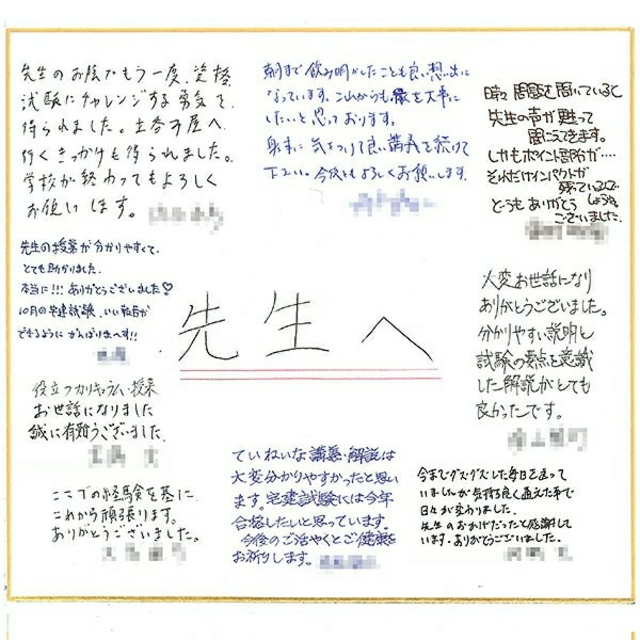 先生のお陰でもう一度、資格
試験にチャレンジする勇気を
得られました。土岐商屋へ
行くきっかけも得られました。
学校が終わってもよろしく
お願いします。
朝まで飲み明かしたことも良い想い出に
なっています。これからも縁を大事に
したいと思っております。
身体に気をつけて良い講義を続けて
下さい。今後もよろしくお願いします。
時々問題を聞いていると
先生の声が甦って
聞こえてきます。
しかもポイント部分が…
それだけインパクトが
残っているんで
しょうね。
どうもありがとう
ございました。
先生の授業が分かりやすくて、
とても助かりました。
本当に!!!ありがとうございました♡
10月の宅建試験、いい報告が
できるようにがんばりまーす!!
先生へ
大変お世話になり
ありがとうございました。
分かりやすい説明と
試験の要点を意識
した解説がとても
良かったです。
役立つカリキュラム・授業
お世話になりました
誠に有難うございました。
ていねいな講義・解説は
大変分かりやすかったと思い
ます。宅建試験には今年
合格したいと思っています。
今後のご活やくとご健康を
お祈りします。
ここでの経験を基に
これから頑張ります。
ありがとうございました。
今までグズグズした毎日を送って
いましたが気持ち良く通えた事で
日々が変わりました。
先生のおかげだったと感謝して
います。ありがとうございました。